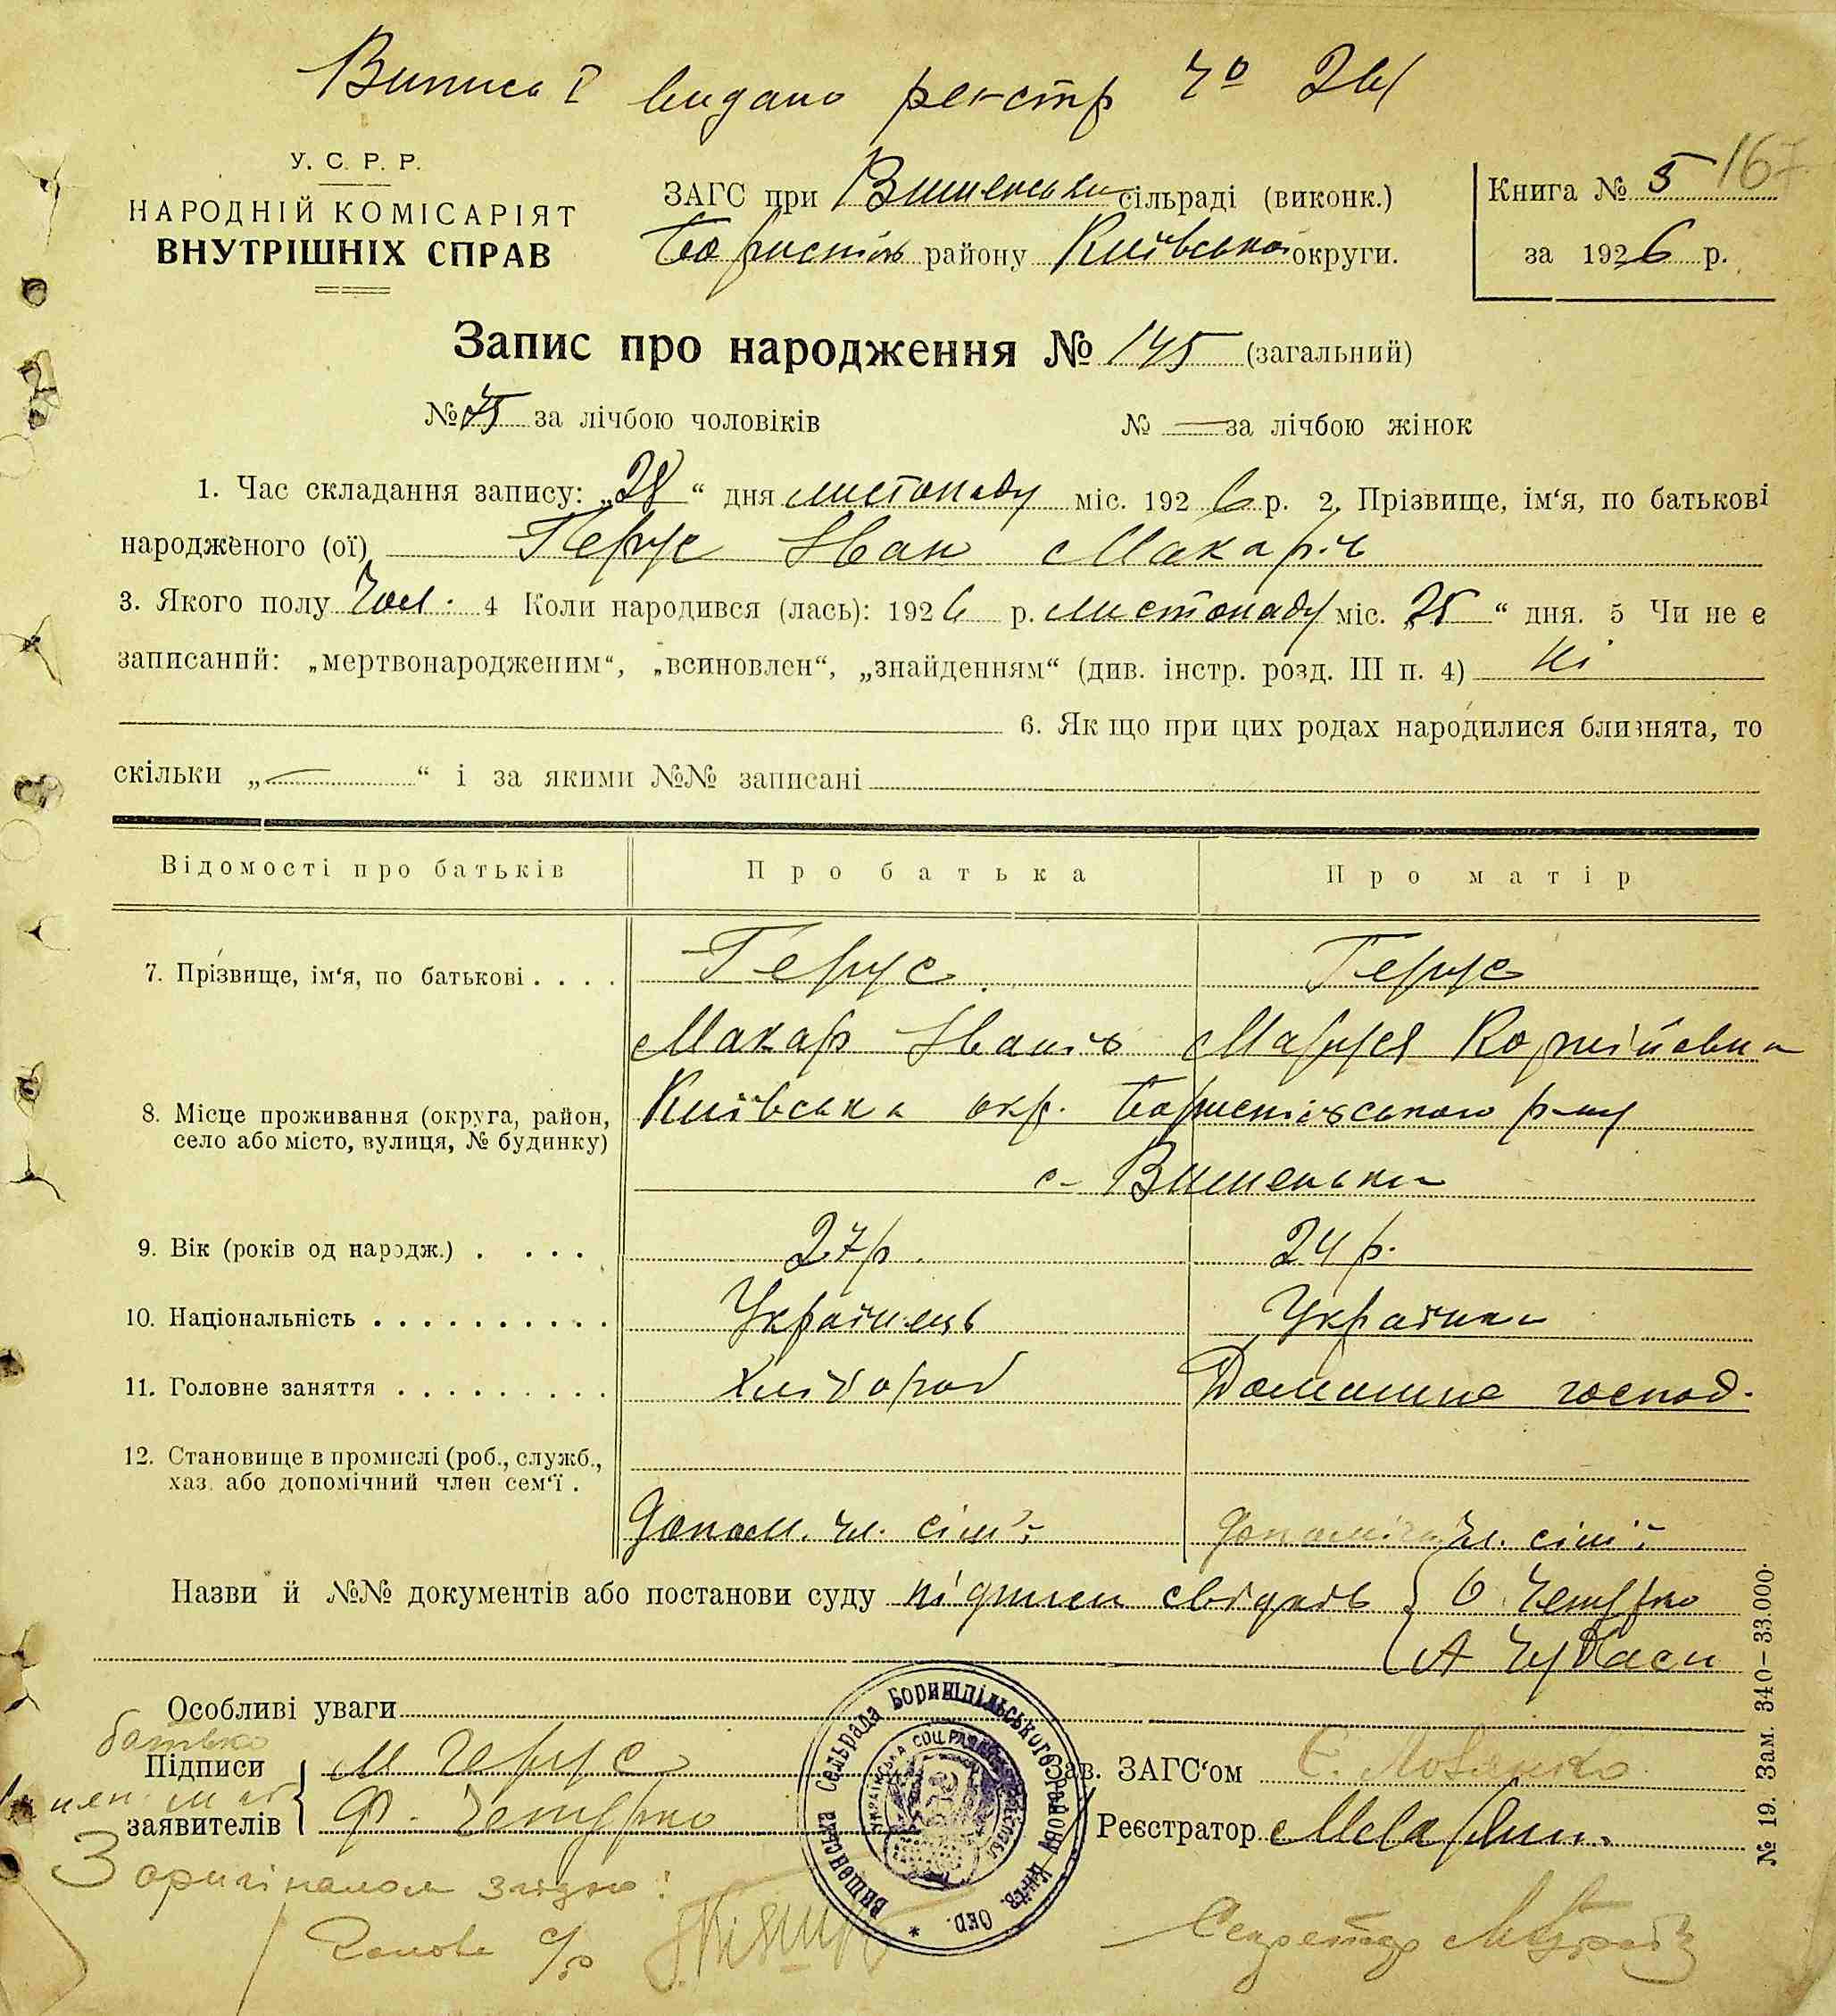 Випись видано реєстр № 261
У. С. Р. Р.
НАРОДНІЙ КОМІСАРІЯТ
ВНУТРІШНІХ СПРАВ
ЗАГС при Вишенськи сільраді (виконк.)
Бориспіль району Київської округи.
Книга № 5 167
за 1926 р.
Запис про народження № 145 (загальний)
№ 75 за лічбою чоловіків № — за лічбою жінок
1. Час складання запису: „28“ дня листопаду міс. 1926 р. 2. Прізвище, ім‘я, по батькові
народженого (ої) Герус Іван Макарів
3. Якого полу Чол. 4 Коли народився (лась): 1926 р. листопаду міс. „25“ дня. 5 Чи не є
записаний: „мертвонародженим“, „всиновлен“, „знайденням“ (див. інстр. розд. III п. 4) ні
6. Як що при цих родах народилися близнята, то
скільки „—“ і за якими №№ записані
Відомості про батьків Про батька Про матір
7. Прізвище, ім‘я, по батькові . . . . Герус Герус
Макар Іванів Маруся Корніївна
8. Місце проживання (округа, район, село або місто, вулиця, № будинку) Київська окр. Бориспільського р-ну
с. Вишеньки
9. Вік (років од народж.) . . . . 27 р. 24 р.
10. Національність . . . . . . . . . . Українець Українка
11. Головне заняття . . . . . . . . . Хлібороб Домашнє господ.
12. Становище в промислі (роб., служб.,
хаз. або допомічний член сем‘ї .
Допом. чл. сім'ї допоміч. чл. сім'ї
Назви й №№ документів або постанови суду підписи свідків
Особливі уваги
батько
Підписи М Герус Зав. ЗАГС‘ом
заявителів Ф. Реєстратор
З оригіналом згідно:
Голова с/р Секретар
Вишенська Сельрада Бориспільського району Київ. Окр. *
№ 19. Зам. 340—33.000.